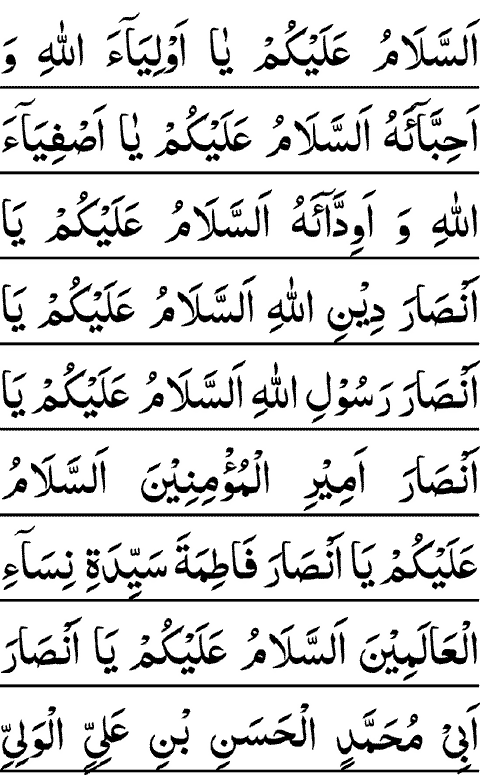 اَلسَّلَامُ عَلَيْكُمْ يٰا اَوْلِيَآءَ اللهِ وَ
اَحِبَّآئَهُ اَلسَّلَامُ عَلَيْكُمْ يٰا اَصْفِيَآءَ
اللهِ وَ اَوِدَّآئَهُ اَلسَّلَامُ عَلَيْكُمْ يَا
اَنْصَارَ دِيْنِ اللهِ اَلسَّلَامُ عَلَيْكُمْ يَا
اَنْصَارَ رَسُوْلِ اللهِ اَلسَّلَامُ عَلَيْكُمْ يَا
اَنْصَارَ اَمِيْرِ الْمُؤْمِنِيْنَ اَلسَّلَامُ
عَلَيْكُمْ يَا اَنْصَارَ فَاطِمَةَ سَيِّدَةِ نِسَآءِ
الْعَالَمِيْنَ اَلسَّلَامُ عَلَيْكُمْ يَا اَنْصَارَ
اَبِيْ مُحَمَّدٍ الْحَسَنِ بْنِ عَلِيِّ الْوَلِيِّ